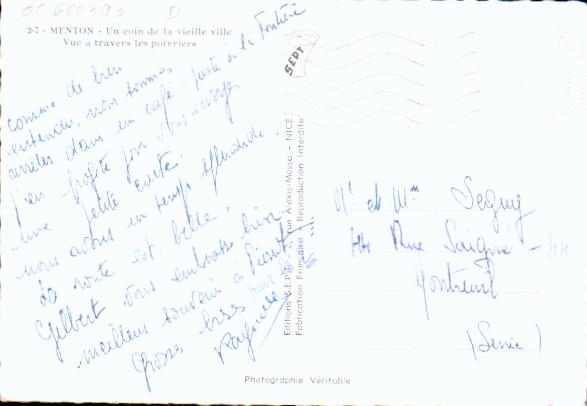 OC600393 D
2-7 - MENTON - Un coin de la vieille ville
Vue à travers les poivriers
comme de bien
entendu, nous sommes
arrêtés dans un café juste à la frontière
j'en profite pour vous envoyer
une petite carte.
nous avons un temps splendide.
La route est belle.
Gilbert vous embrasse bien
meilleurs souvenirs à
Grosses bises
SEPT
Editions S.E.P.T. - rue Alexis-Mossa - NICE
Fabrication Française - Reproduction Interdite
Mr et Mme Seguy
44 Rue
Montreuil
(Seine)
Photographie Véritable